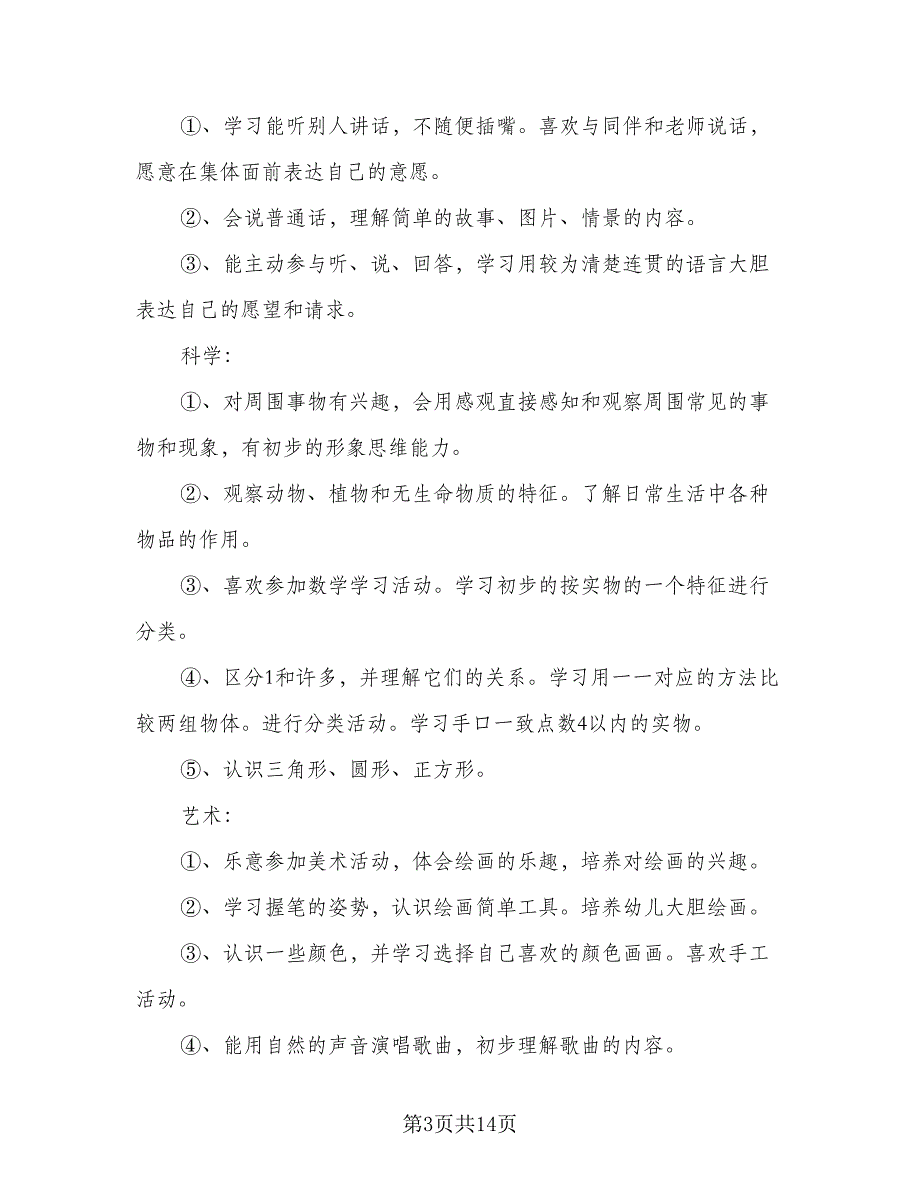 ①、学习能听别人讲话，不随便插嘴。喜欢与同伴和老师说话，
愿意在集体面前表达自己的意愿。
②、会说普通话，理解简单的故事、图片、情景的内容。
③、能主动参与听、说、回答，学习用较为清楚连贯的语言大胆
表达自己的愿望和请求。
科学：
①、对周围事物有兴趣，会用感观直接感知和观察周围常见的事
物和现象，有初步的形象思维能力。
②、观察动物、植物和无生命物质的特征。了解日常生活中各种
物品的作用。
③、喜欢参加数学学习活动。学习初步的按实物的一个特征进行
分类。
④、区分1和许多，并理解它们的关系。学习用一一对应的方法比
较两组物体。进行分类活动。学习手口一致点数4以内的实物。
⑤、认识三角形、圆形、正方形。
艺术：
①、乐意参加美术活动，体会绘画的乐趣，培养对绘画的兴趣。
②、学习握笔的姿势，认识绘画简单工具。培养幼儿大胆绘画。
③、认识一些颜色，并学习选择自己喜欢的颜色画画。喜欢手工
活动。
④、能用自然的声音演唱歌曲，初步理解歌曲的内容。
第3页共14页